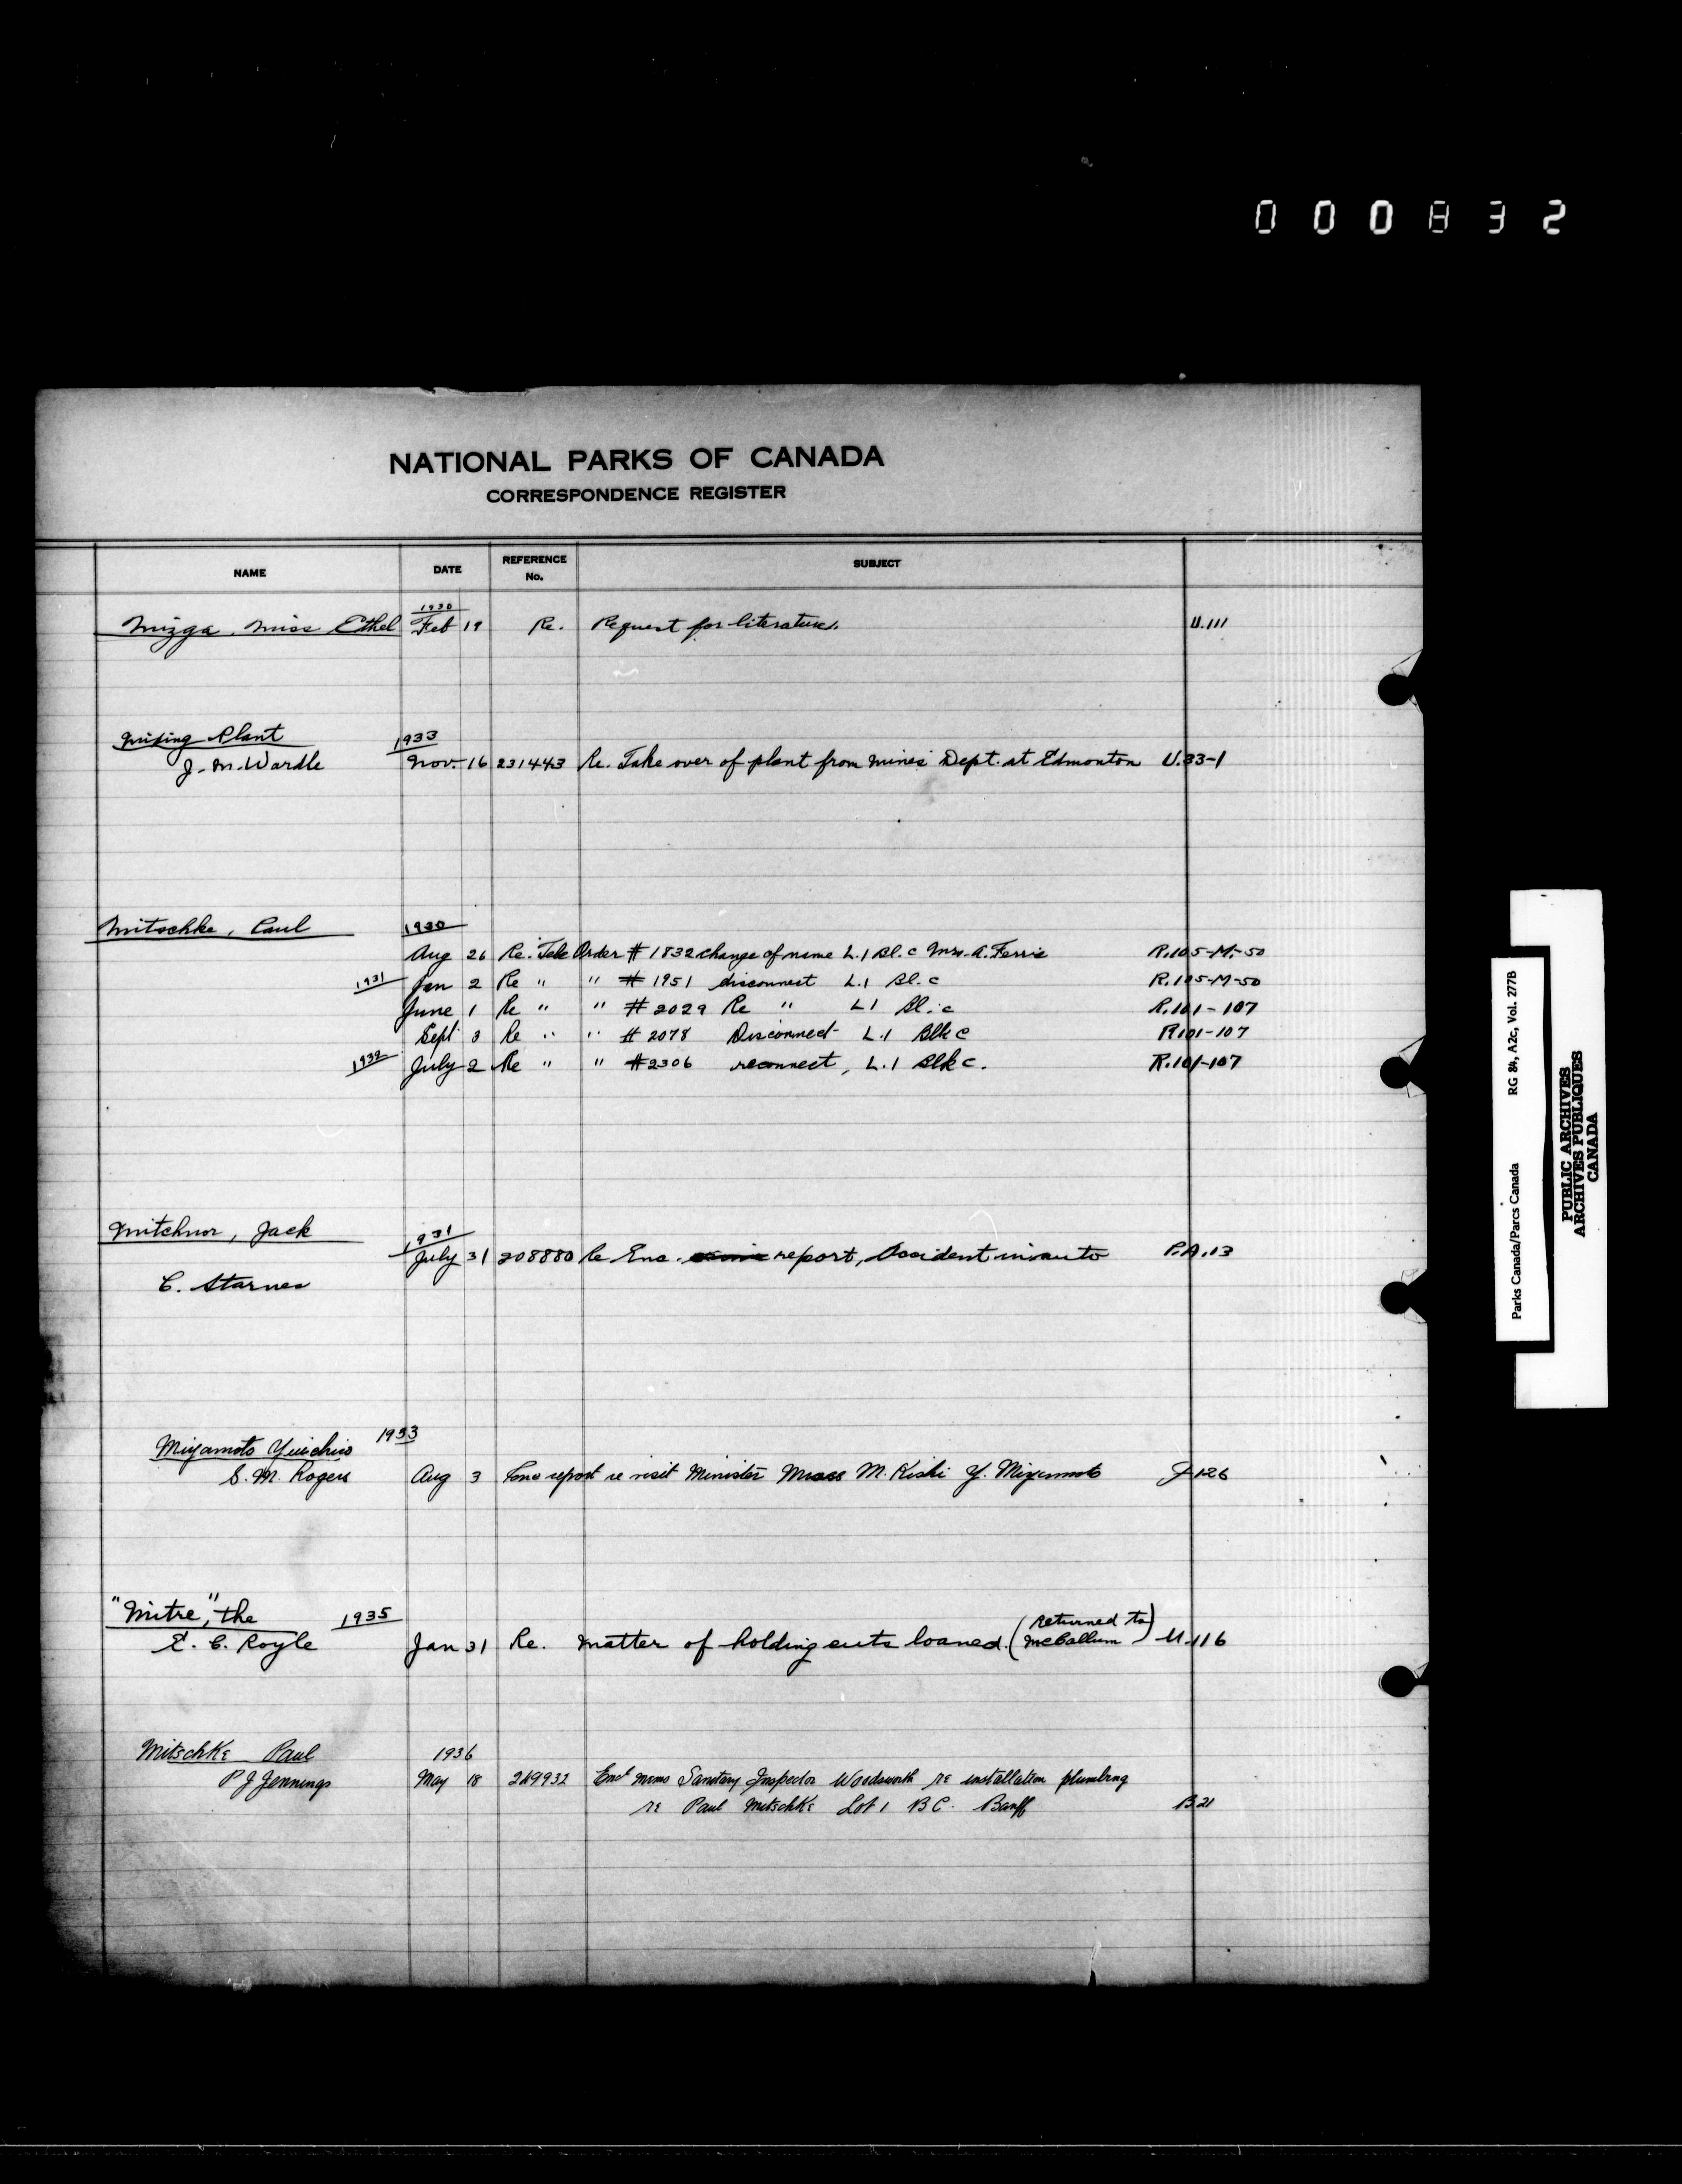 000832
NATIONAL PARKS OF CANADA
CORRESPONDENCE REGISTER
NAME DATE REFERENCE No. SUBJECT
1930
Mizga, Miss Ethel Feb 19 Re. Request for literature. U.111
Mixing Plant 1933
J. M. Wardle Nov. 16 231443 Re. Take over of plant from Mines Dept. at Edmonton U.33-1
Mitschke, Paul 1930
Aug 26 Re. Tele Order # 1832 change of name L.1 Bl. C Mrs. A. Ferris R.105-M-50
1931 Jan 2 Re " " # 1951 disconnect L.1 Bl. C R.105-M-50
June 1 Re " " # 2029 Re " L1 Bl. C R.101-107
Sept 3 Re " " # 2078 Disconnect L.1 Blk C R101-107
1932 July 2 Re " " #2306 reconnect, L.1 Blk C. R.101-107
Mitchnor, Jack 1931
July 31 208880 Re Enc. report, Accident in auto P.A.13
C. Starnes
Miyamoto Yuichiro 1933
S. M. Rogers Aug 3 report re visit Minister M. Kishi Y. Miyamoto J-126
"Mitre", the 1935
E. C. Royle Jan 31 Re. Matter of holding cuts loaned. (Returned to McCallum) U-116
Mitschke Paul 1936
P J Jennings May 18 249932 Encl memo Sanitary Inspector Woodsworth re installation plumbing
re Paul Mitschke Lot 1 B C. Banff B21
Parks Canada/Parcs Canada RG 84, A2c, Vol. 2778
PUBLIC ARCHIVES
ARCHIVES PUBLIQUES
CANADA